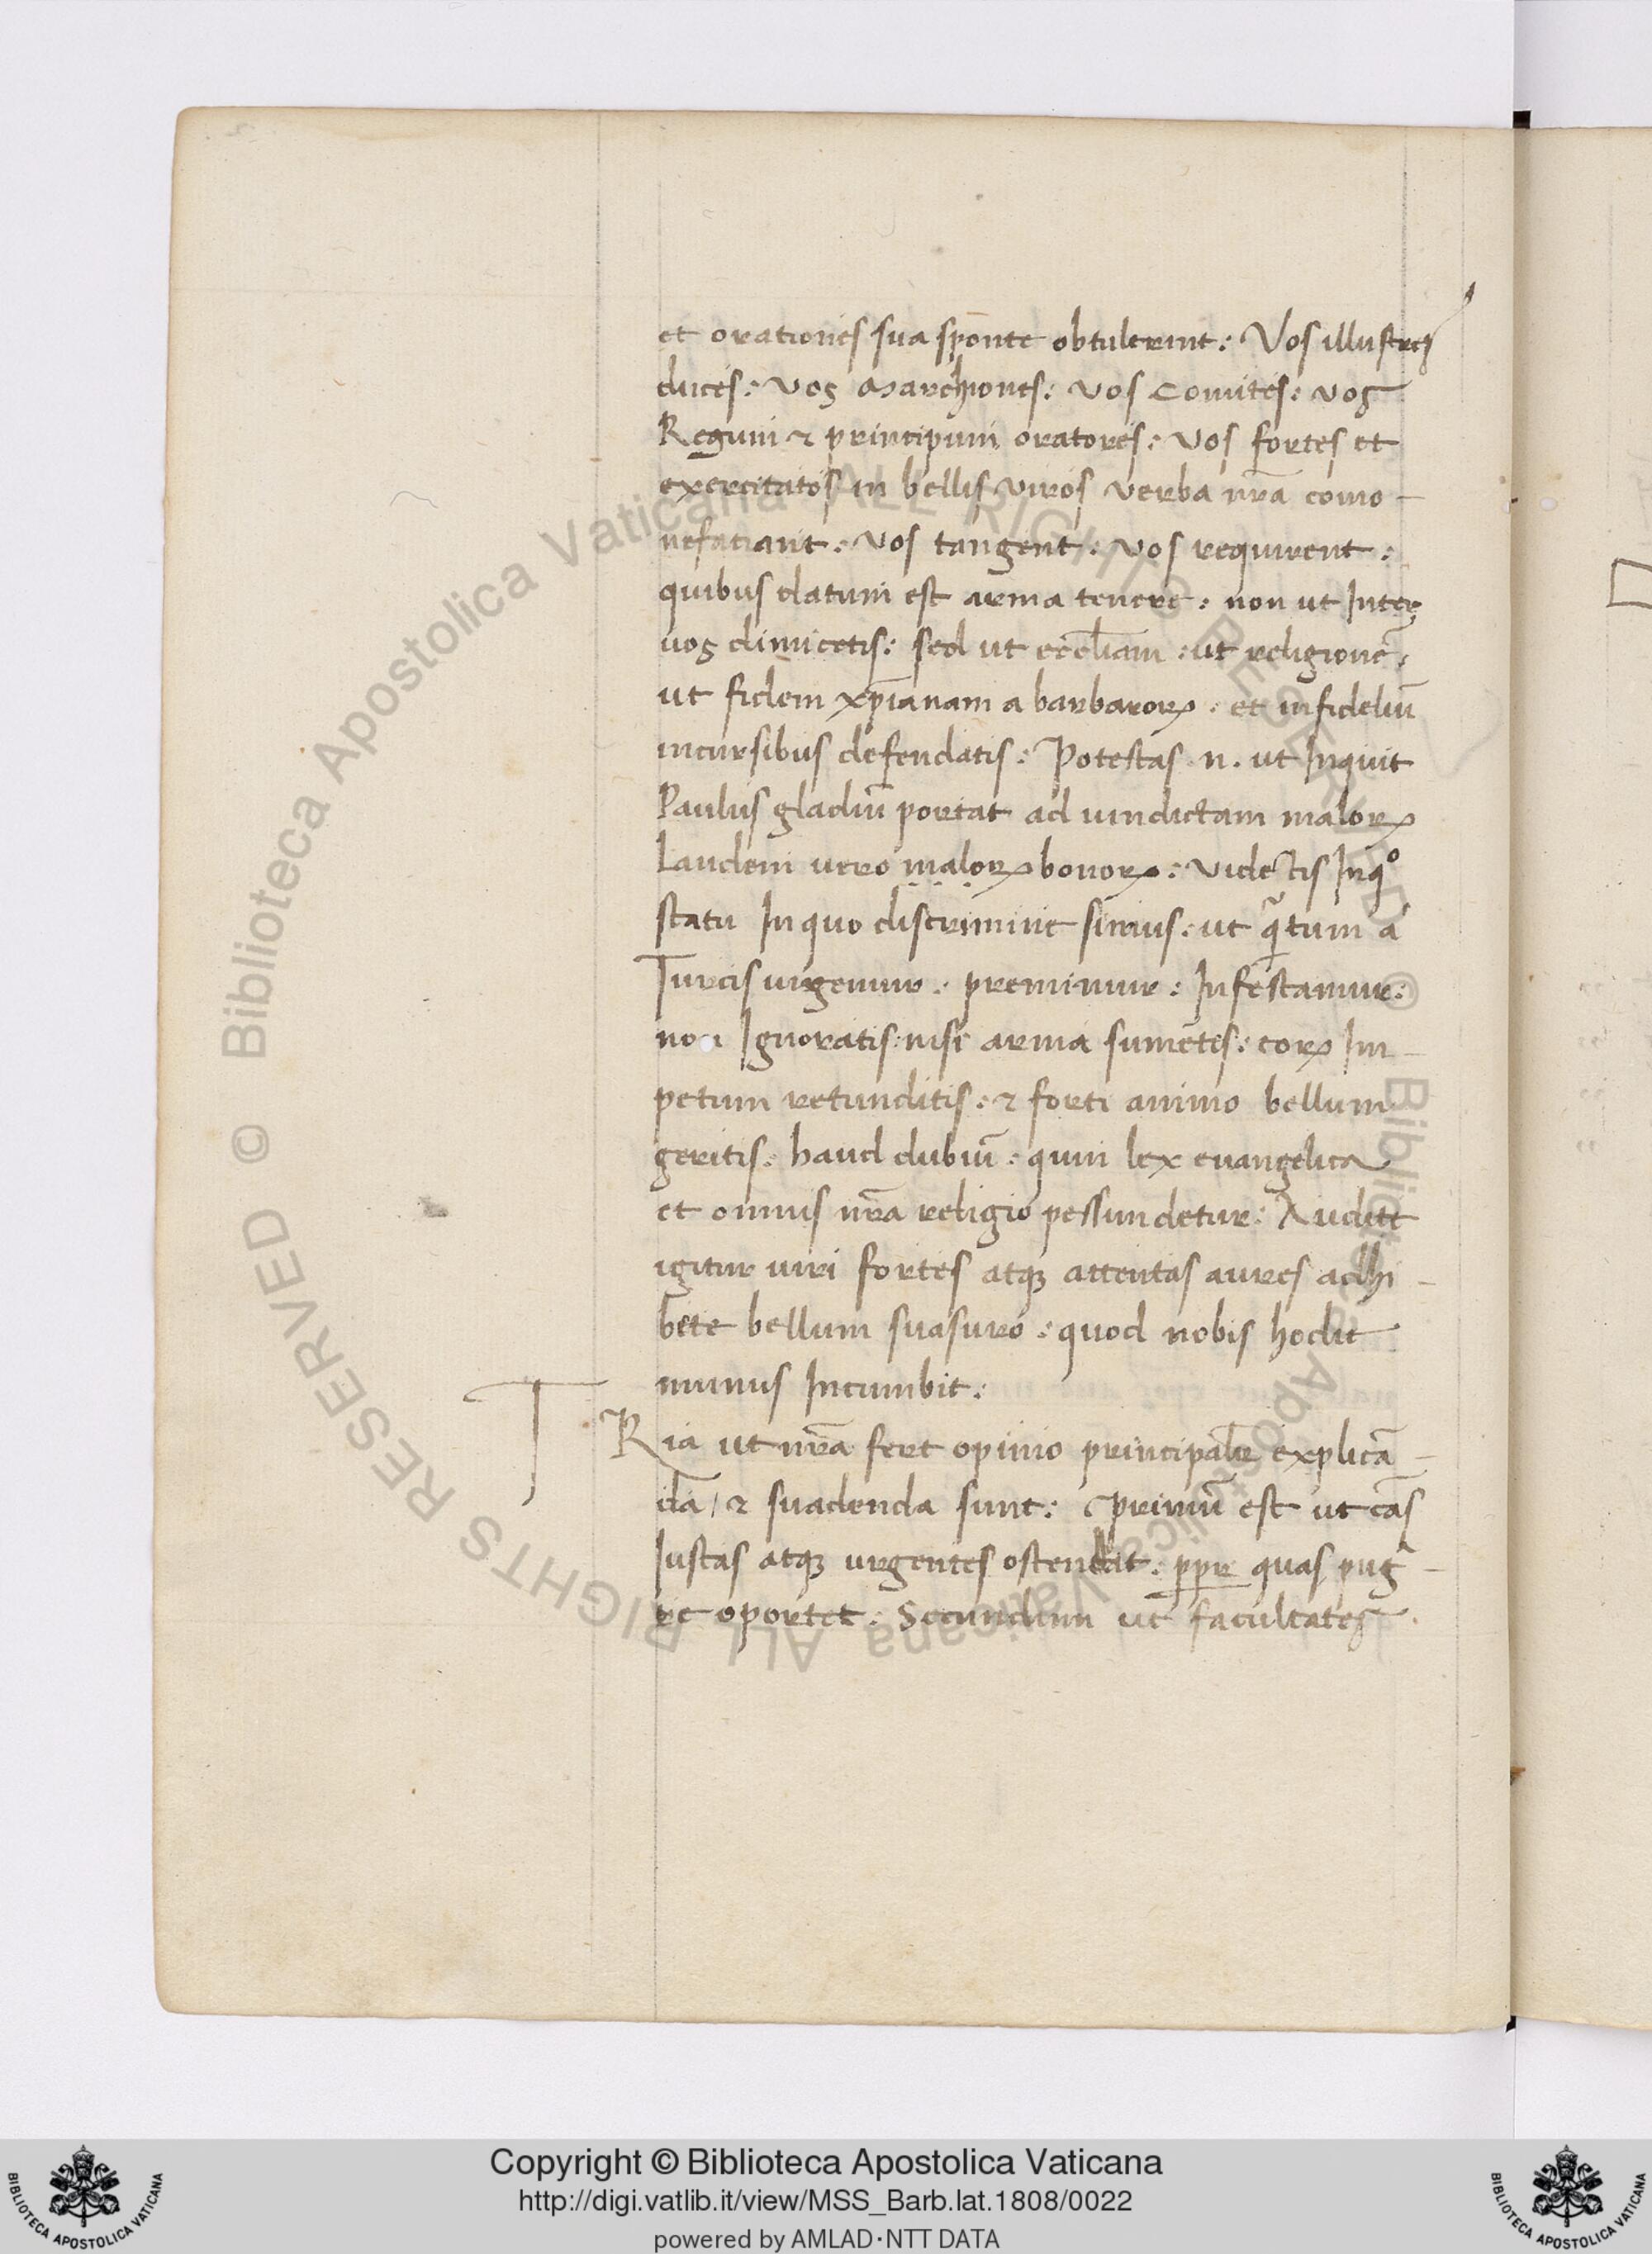 et orationes sua sponte obtulerint: Vos illustres
duces: vos Marchiones: vos Comites: vos
Regum & principum oratores: vos fortes et
exercitatos in bellis viros verba nr̄a como-
nefaciant: vos tangent: vos requirent:
quibus datum est arma tenere: non ut Inter
vos dimicetis: sed ut eccl̄iam: ut religionē:
ut fidem xp̄ianam a barbaroꝝ: et infideliū
incursibus defendatis: Potestas .n. ut Inquit
Paulus gladiū portat ad vindictam maloꝝ
laudem vero maloꝝ bonoꝝ: Videtis Inqͦ
statu In quo discrimine simus: ut qͣ̄tum a
Turcis urgemur: premimur: Infestamur:
non Ignoratis: nisi arma sumētes: eoꝝ Im-
petum retunditis: & forti animo bellum
geritis: haud dubiū: quin lex evangelica
et omnis nr̄a religio pessundetur: Audite
igitur viri fortes atqꝫ attentas aures adhi-
bete bellum suasuro: quod nobis hodie
munus Incumbit:
T Ria ut nr̄a fert opinio principalr̄ explicā-
da / & suadenda sunt: primū est ut cās
Iustas atqꝫ urgentes ostendat: ꝓpr̄ quas pug-
re oportet: Secundum ut facultates
Copyright © Biblioteca Apostolica Vaticana
http://digi.vatlib.it/view/MSS_Barb.lat.1808/0022
powered by AMLAD·NTT DATA
BIBLIOTECA APOSTOLICA VATICANA
BIBLIOTECA APOSTOLICA VATICANA
© Biblioteca Apostolica Vaticana ALL RIGHTS RESERVED © Biblioteca Apostolica Vaticana ALL RIGHTS RESERVED